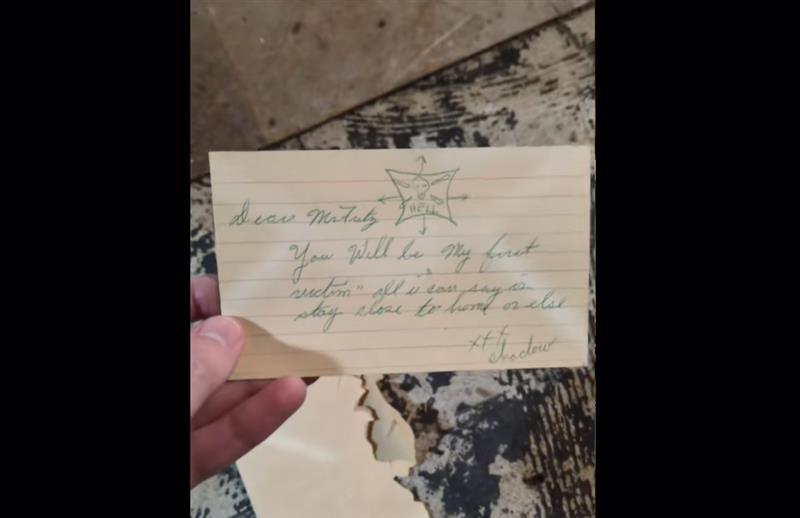 HELL
Dear Mr Fritz
You Will be My first
victim" all i can say is
stay close to home or else
xxx
shadow